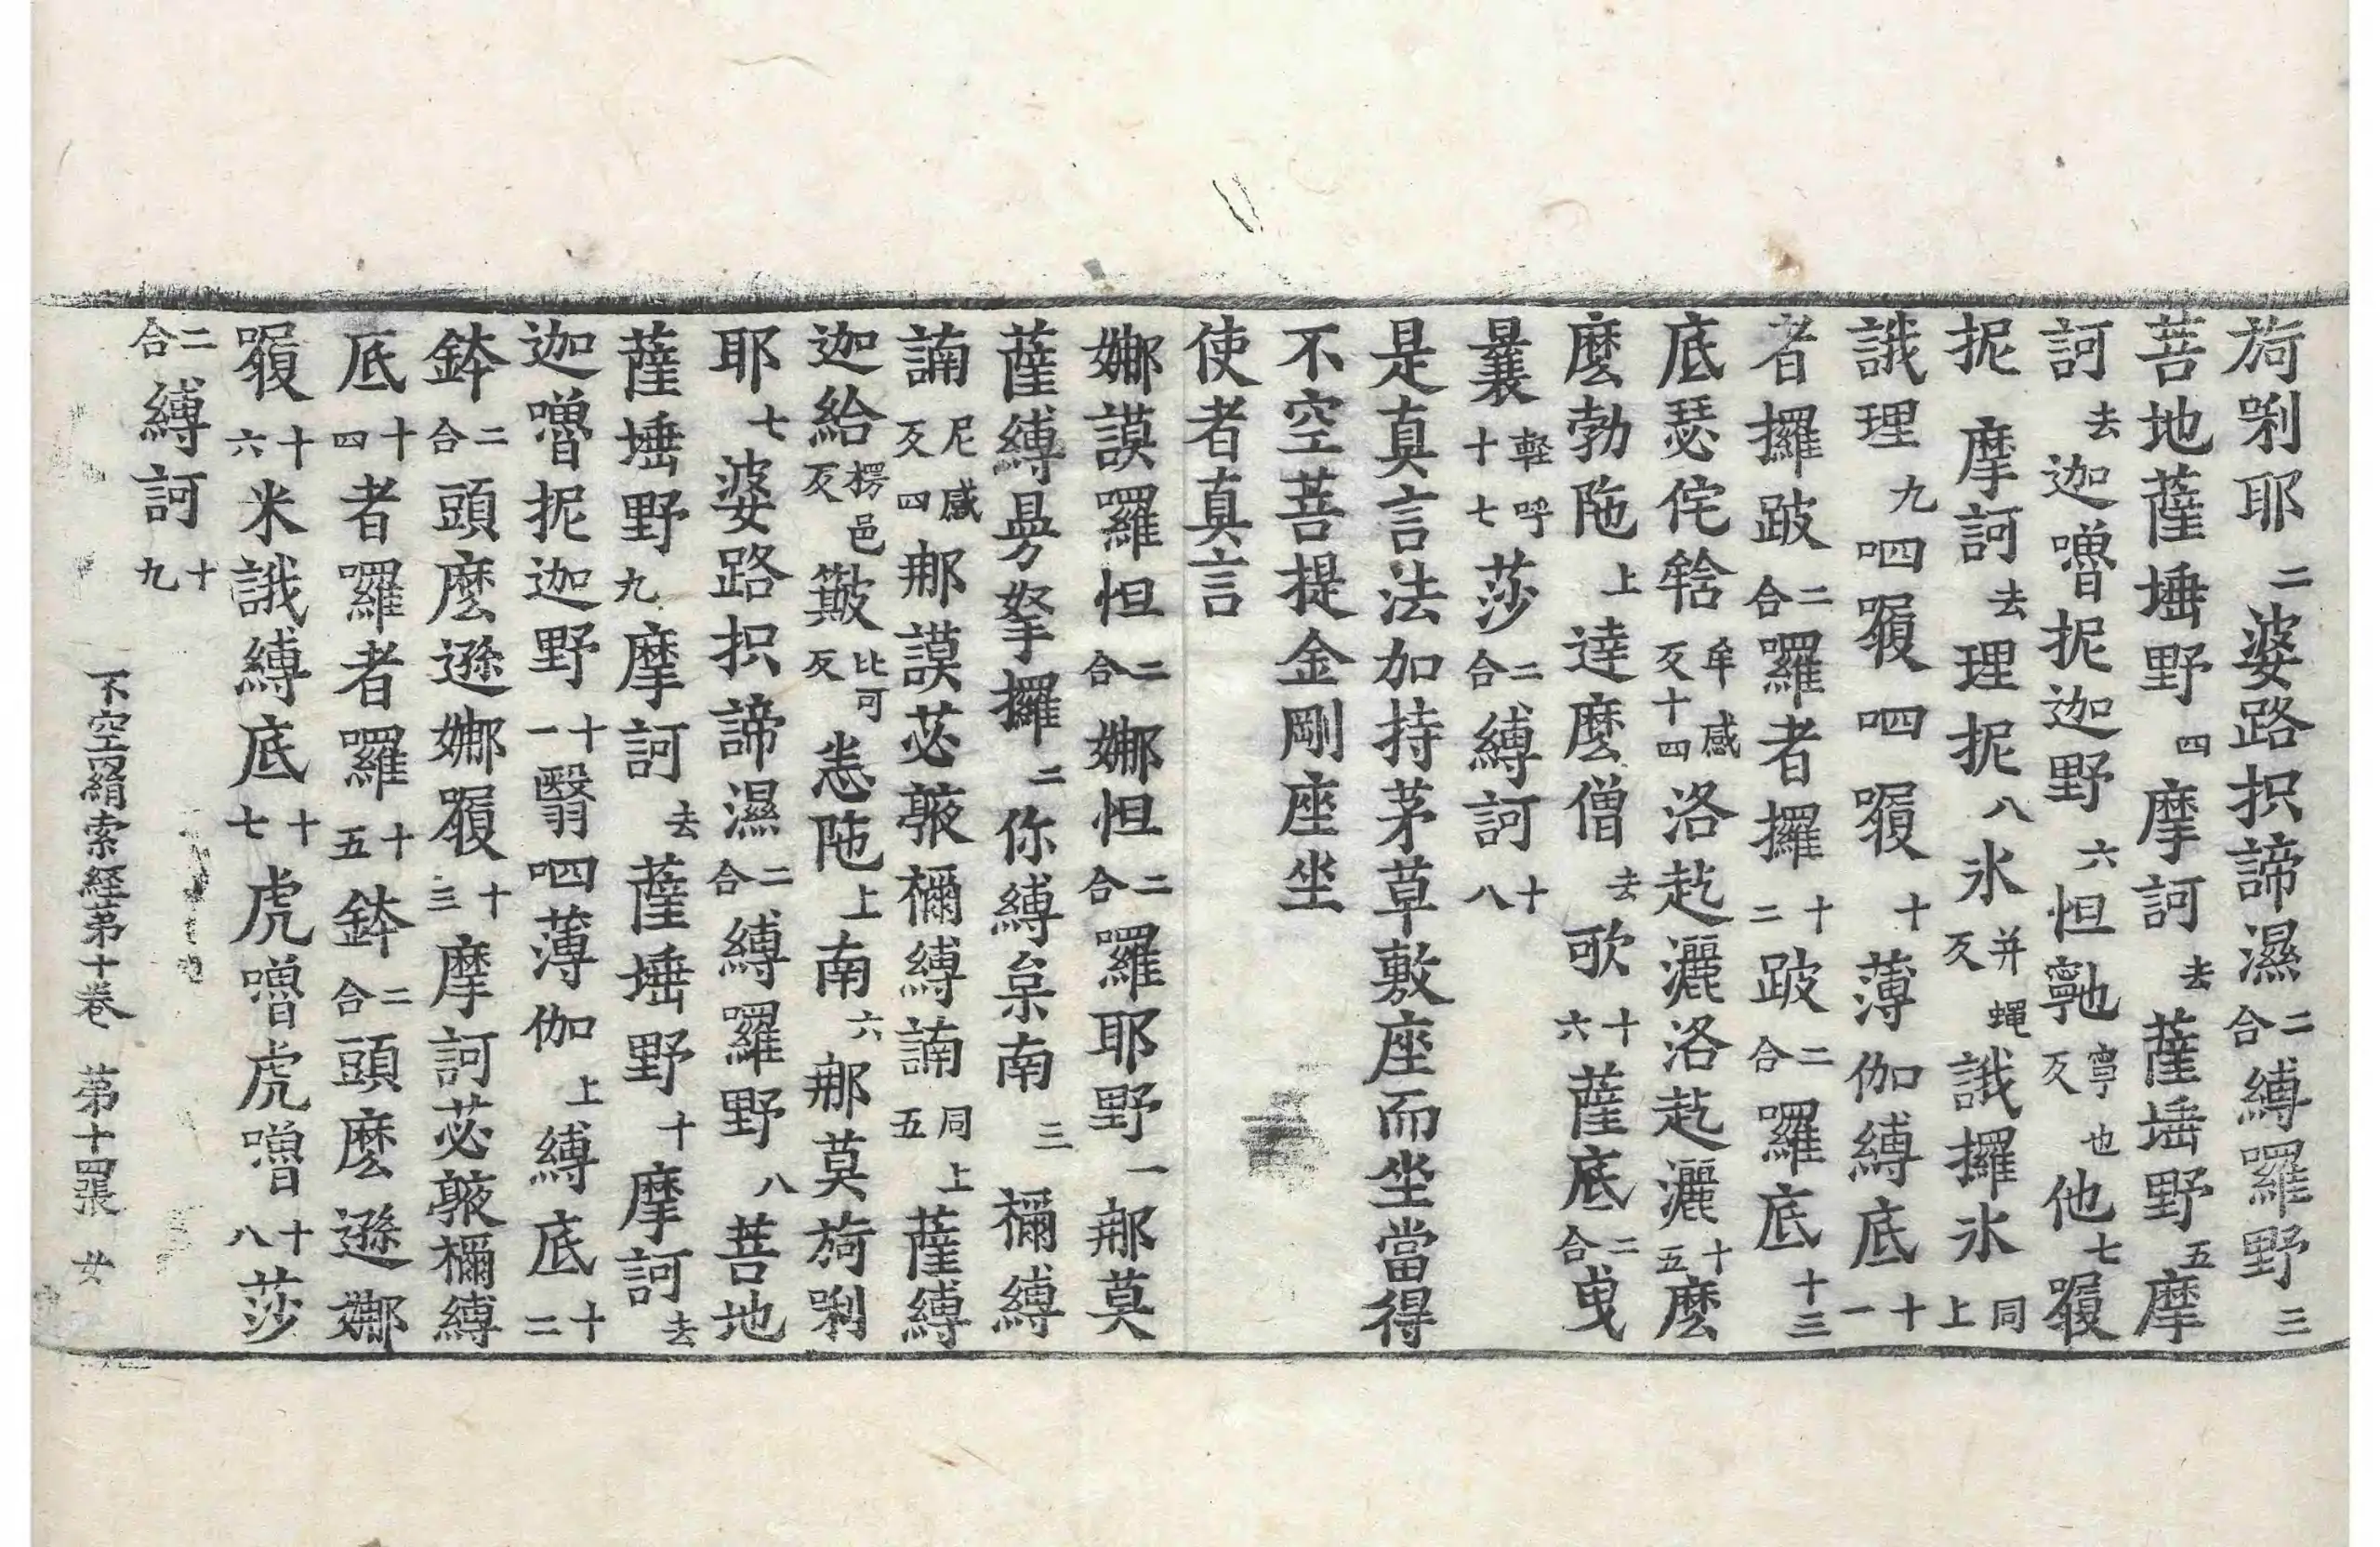 旖唎耶二婆路抧諦濕二合縛囉野三
菩地薩埵野四摩訶去薩埵野五摩
訶去迦嚕抳迦野六怛𩕳寧也反他七㘑
抳摩訶去理抳八氷并蠅反誐攞氷同上
誐理九呬㘑呬㘑十薄伽縛底十一
者攞跛二合囉者攞十二跛二合囉底十三
底瑟侘𤚥牟感反十四洛訖灑洛訖灑十五麼
麼勃陁上達麼僧去歌十六薩底二合曳
曩輕呼十七莎二合縛訶十八
是真言法加持茅草敷座而坐當得
不空菩提金剛座坐
使者真言
娜謨囉怛二合娜怛二合囉耶野一那莫
薩縛曓拏攞二你縛枲南三禰縛
諵尼感反四那謨苾䠶禰縛諵同上五薩縛
迦給楞邑反簸比可反恙陁上南六那莫旖唎
耶七婆路抧諦濕二合縛囉野八菩地
薩埵野九摩訶去薩埵野十摩訶去
迦嚕抳迦野十一翳呬薄伽上縛底十二
鉢二合頭麼遜娜㘑十三摩訶苾䠶禰縛
底十四者囉者囉十五鉢二合頭麼遜娜
㘑十六米誐縛底十七虎嚕虎嚕十八莎
二合縛訶十九
不空羂索経第十卷 第十四張 女